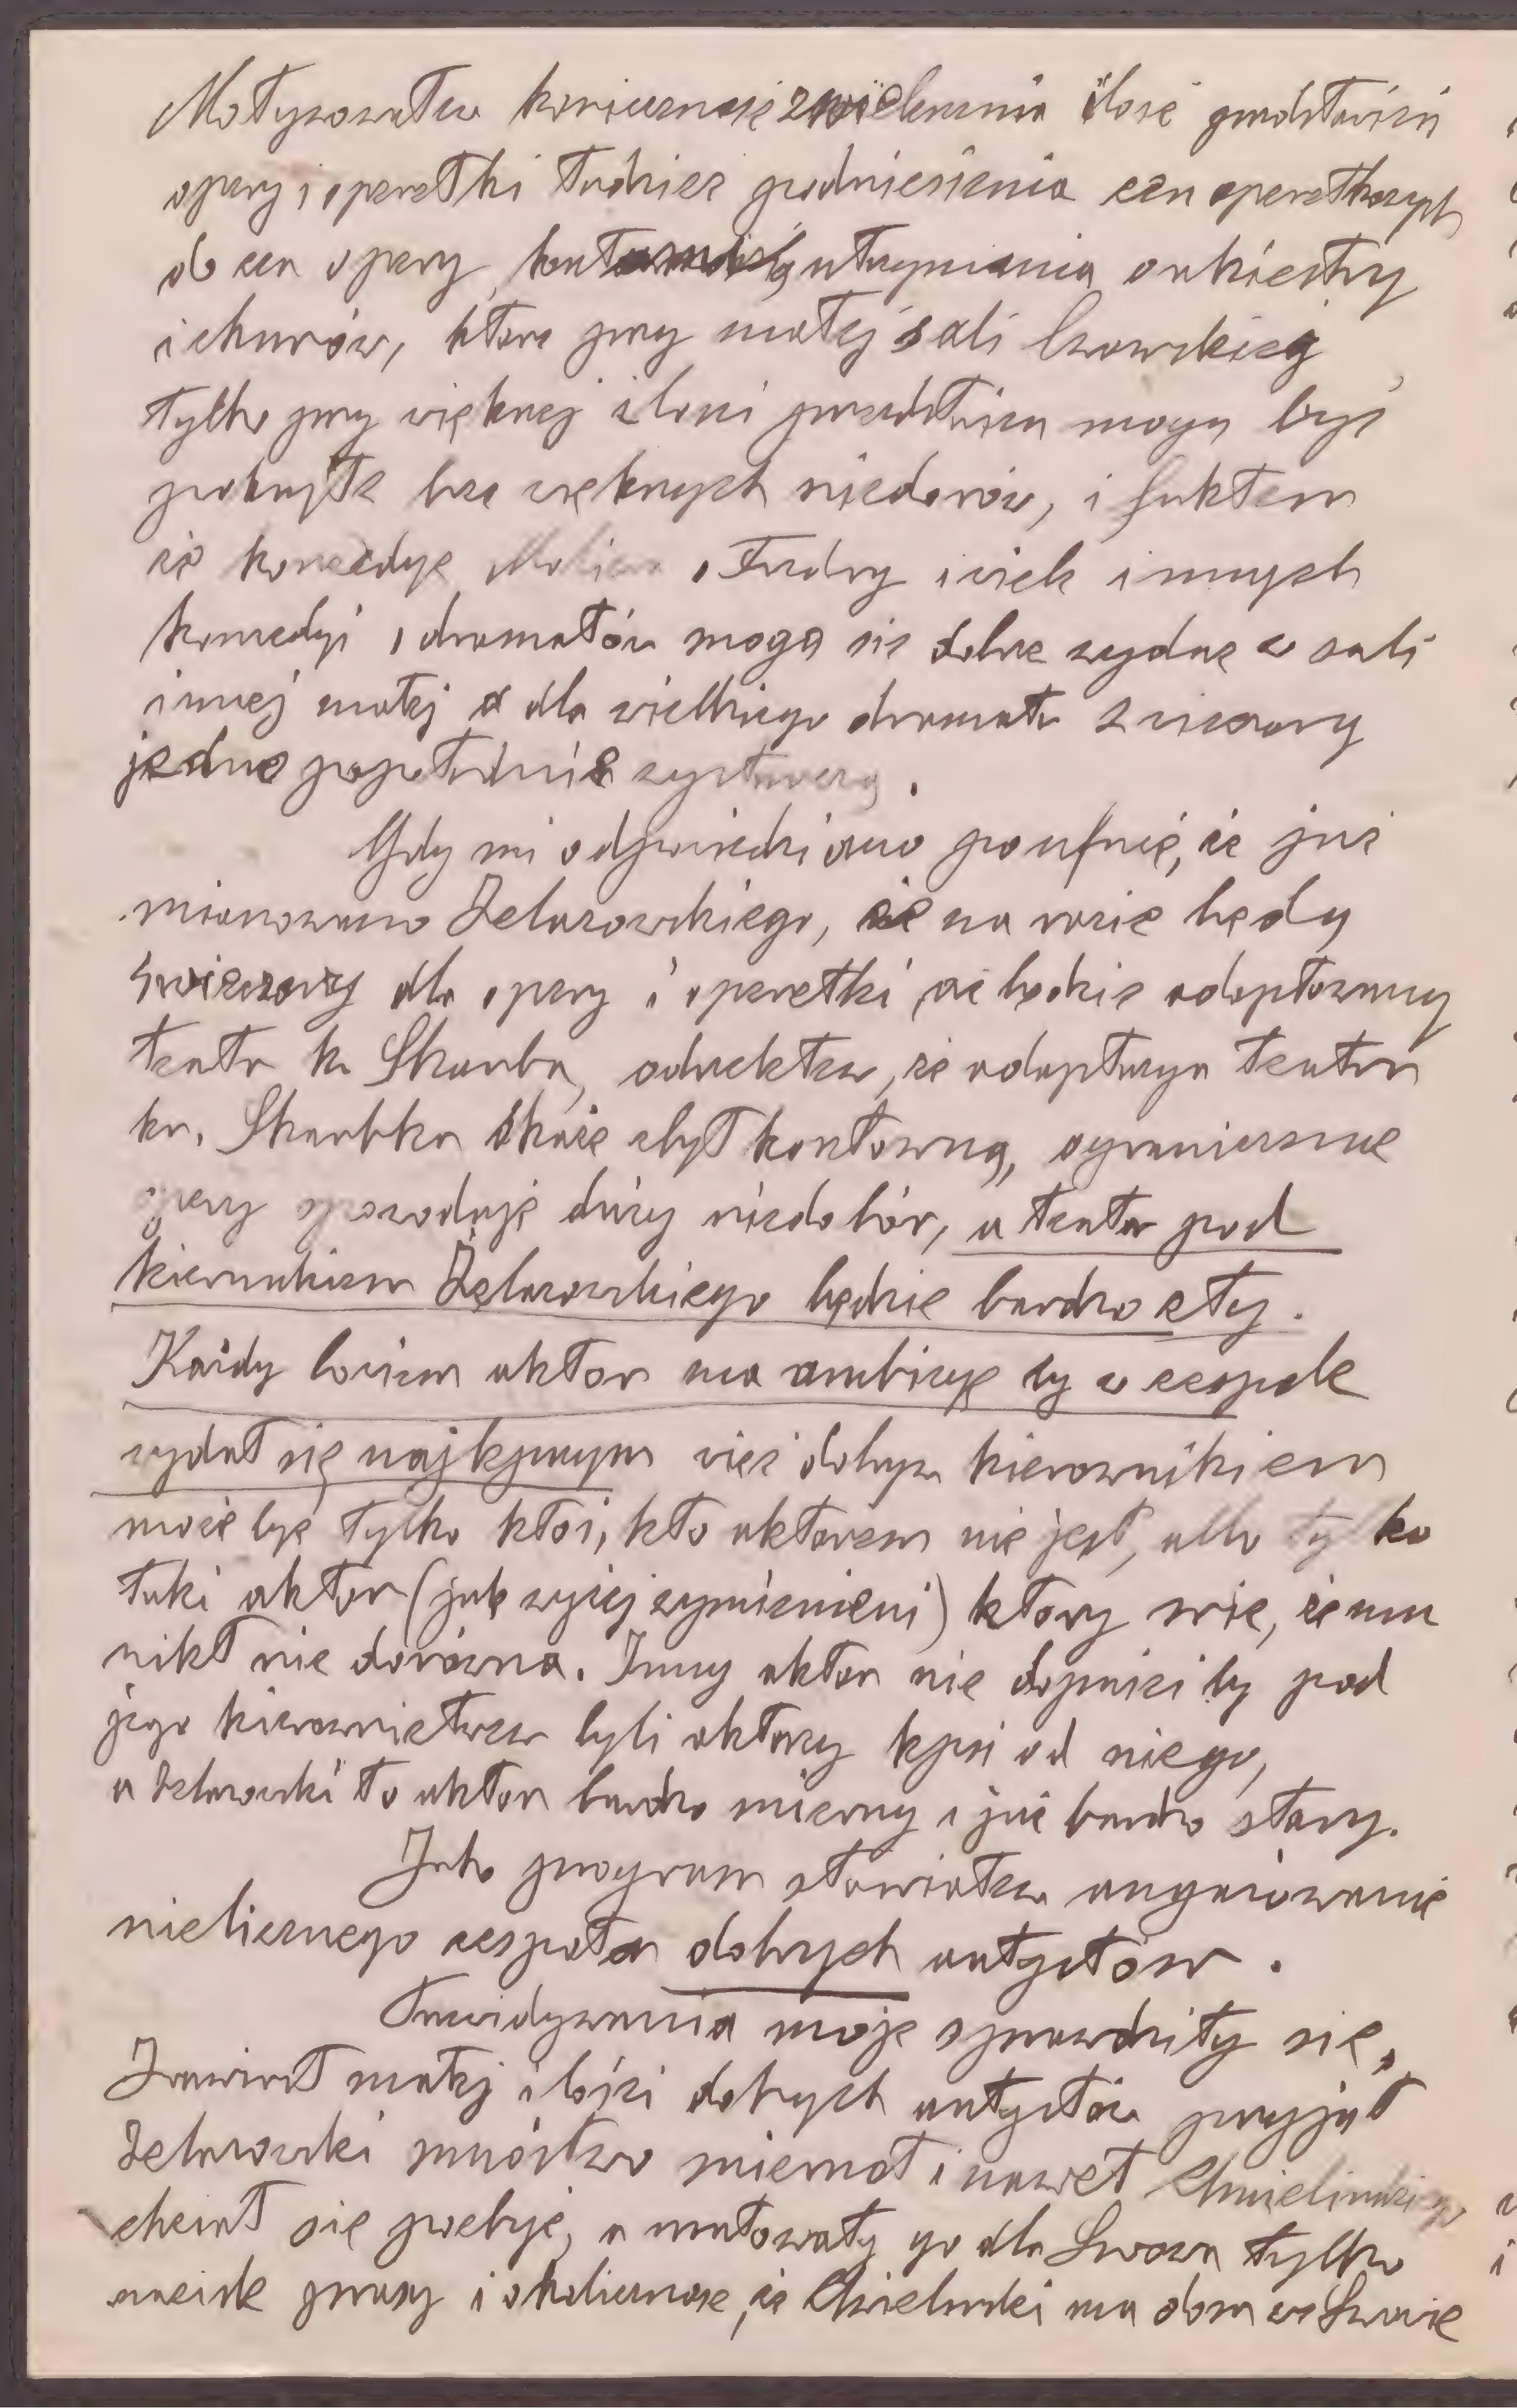 Motywowałem konieczność zwiększenia ilość przedstawień
opery i operetki tudzież podniesienia cen operetkowych
do cen opery, utrzymania orkiestry
i chórów, które przy małej sali lwowskiej
tylko przy większej ilości przedstawień mogą być
pokryte bez większych niedoborów, i faktem
że komedye Moliera, Fredry i wiele innych
komedyi i dramatów mogą się dobrze wydać w sali
innej małej a dla wielkiego dramatu 2 wieczory
jedno popołudnie wystarczą.
Gdy mi odpowiedziano poufnie, że już
mianowano Żelazowskiego, że na razie będą
3 wieczory dla opery i operetki, że będzie adoptowany
teatr hr Skarbka, odrzekłem, że adaptacya teatru
hr. Skarbka okaże zbyt kosztowną, ograniczenie
opery spowoduje duży niedobór, a teatr pod
kierunkiem Żelazowskiego będzie bardzo zły.
Każdy bowiem aktor ma ambicyę by w zespole
wydał się najlepszym więc dobrym kierownikiem
może być tylko ktoś, kto aktorem nie jest, albo tylko
taki aktor (jak wyżej wymienieni) który wie, że mu
nikt nie dorówna. Inny aktor nie dopuści by pod
jego kierownictwem byli aktorzy lepsi od niego,
a Żelazowski to aktor bardzo mierny i już bardzo stary.
Jako program stawiałem angażowanie
nielicznego zespołu dobrych artystów.
Przewidywania moje sprawdziły się,
Zamiast małej ilości dobrych artystów przyjął
Żelazowski mnóstwo miernot i nawet Chmielińskiego
chciał się pozbyć, a uratowały go dla Lwowa tylko
nacisk prasy i okoliczność, że Chmieliński ma dom we Lwowie